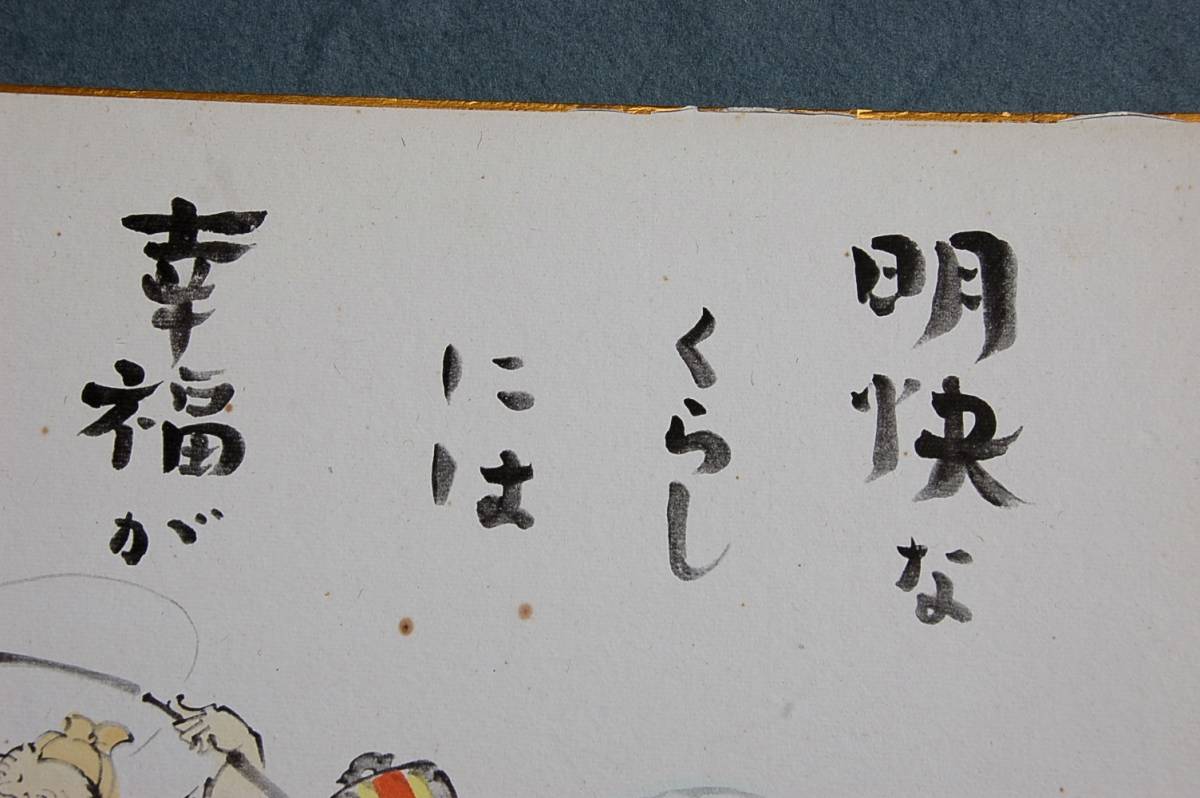 明快な
くらし
には
幸福が